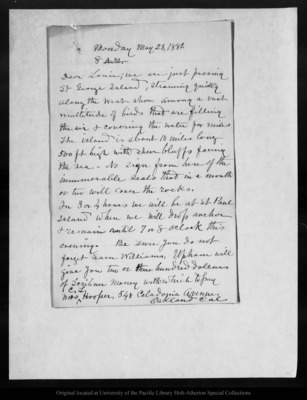 Monday May 23, 1881.
8 Antler
Dear Louie; we are just passing
St George Island, steaming quietly
along the west shore among a vast
multitude of birds that are filling
the air & covering the water for miles
The island is about 10 miles long
500 ft high with sheer bluffs facing
the sea. No sign from here of the
innumerable seals that in a month
or two will cover the rocks.
In 3 or 4 hours we will be at St Paul
Island where we will drop anchor
& remain until 7 or 8 o'clock this
evening. Be sure you do not
forget Sam Williams. Upham will
give you two or three hundred dollars
of Scribner money with which to pay
Mrs Hooper, 548 Caledonia Avenue
Oakland Cal
Original located at University of the Pacific Library Holt-Atherton Special Collections